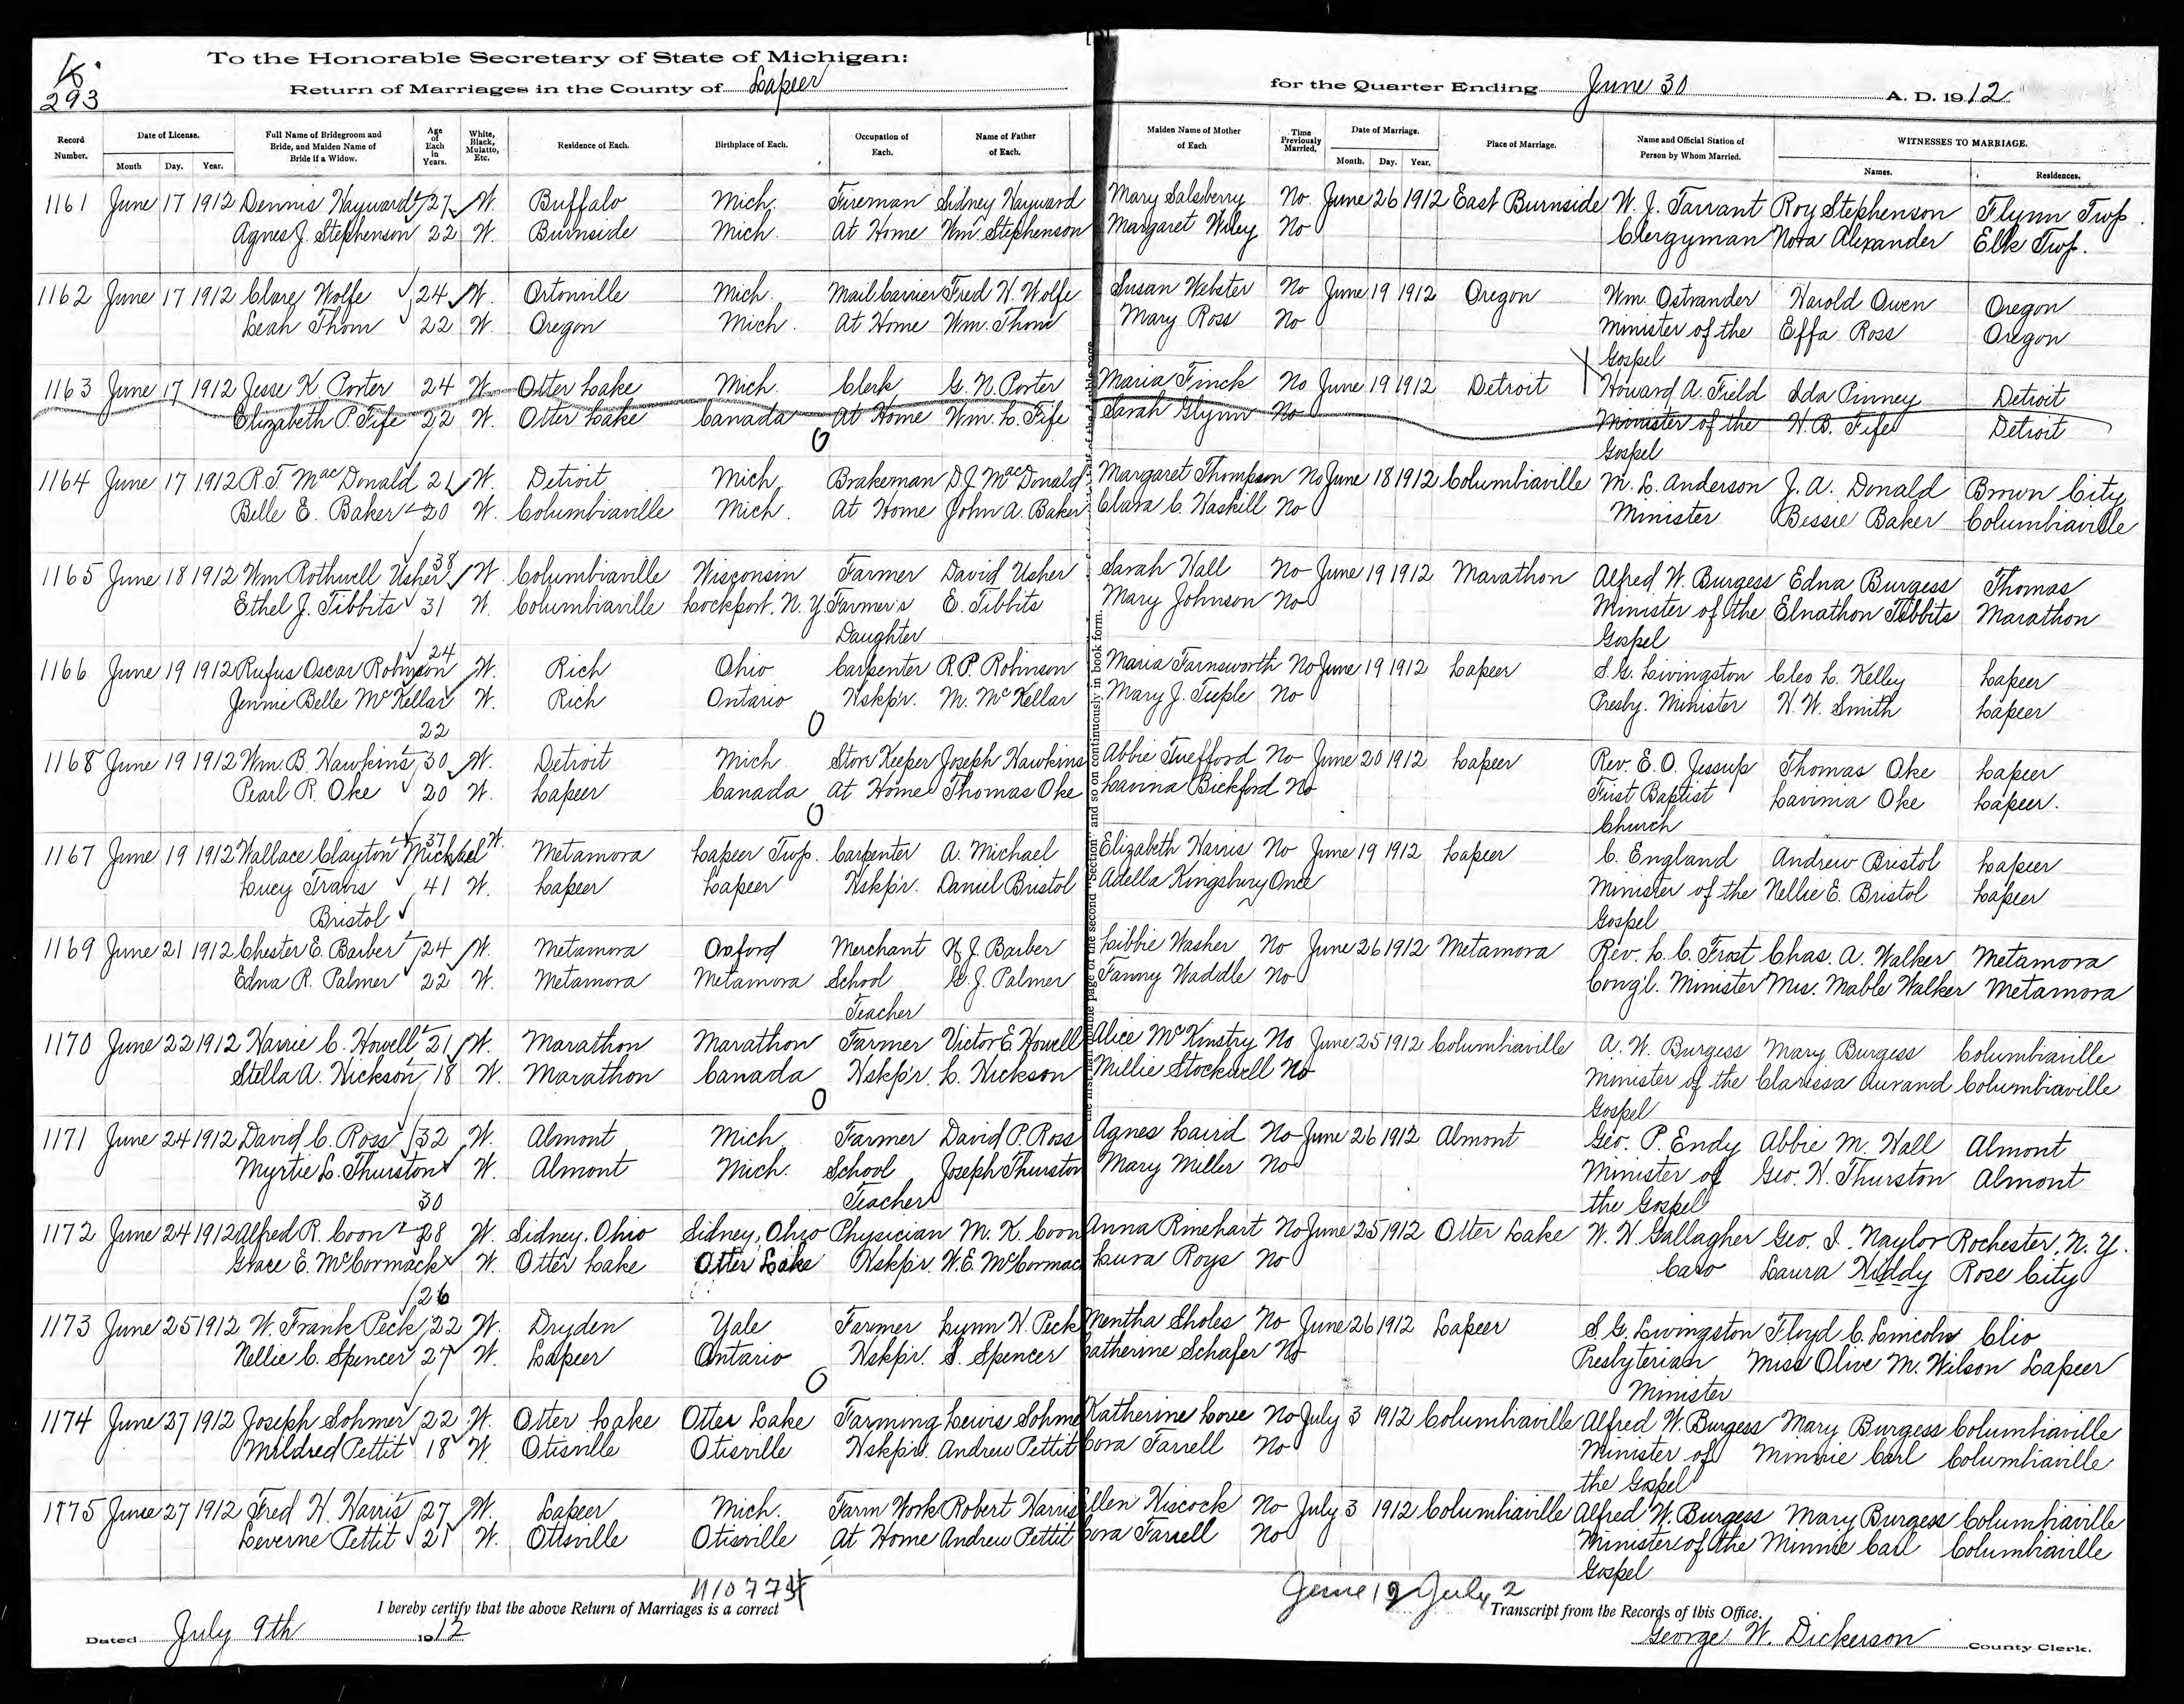 K.
293
To the Honorable Secretary of State of Michigan:
Return of Marriages in the County of Lapeer for the Quarter Ending June 30 A. D. 1912
Record Number. Date of License. Month Day. Year. Full Name of Bridegroom and Bride, and Maiden Name of Bride if a Widow. Age of Each in Years. White, Black, Mulatto, Etc. Residence of Each. Birthplace of Each. Occupation of Each. Name of Father of Each. Maiden Name of Mother of Each Time Previously Married. Date of Marriage. Month. Day. Year. Place of Marriage. Name and Official Station of Person by Whom Married. WITNESSES TO MARRIAGE. Names. Residences.
1161 June 17 1912 Dennis Hayward 27 W. Buffalo Mich. Fireman Sidney Hayward Mary Salsberry No June 26 1912 East Burnside W. J. Tarrant Roy Stephenson Flynn Twp.
Agnes J. Stephenson 22 W. Burnside Mich. At Home Wm. Stephenson Margaret Wiley No Clergyman Nora Alexander Elk Twp.
1162 June 17 1912 Clare Wolfe 24 W. Ortonville Mich. Mail Carrier Fred H. Wolfe Susan Webster No June 19 1912 Oregon Wm. Ostrander Harold Owen Oregon
Leah Thom 22 W. Oregon Mich. At Home Wm. Thom Mary Ross No Minister of the Effa Ross Oregon
Gospel
1163 June 17 1912 Jesse K Porter 24 W. Otter Lake Mich. Clerk G. N. Porter Maria Finck No June 19 1912 Detroit Howard A. Field Ida Pinney Detroit
Elizabeth P. Fife 22 W. Otter Lake Canada At Home Wm. L. Fife Sarah Glynn No Minister of the H. B. Fife Detroit
0 Gospel
1164 June 17 1912 R. T. MacDonald 21 W. Detroit Mich. Brakeman D. J. MacDonald Margaret Thompson No June 18 1912 Columbiaville M. L. Anderson J. A. Donald Brown City
Belle E. Baker 20 W. Columbiaville Mich. At Home John A. Baker Clara C. Haskill No Minister Bessie Baker Columbiaville
1165 June 18 1912 Wm Rothwell Usher 38 W. Columbiaville Wisconsin Farmer David Usher Sarah Hall No June 19 1912 Marathon Alfred W. Burgess Edna Burgess Thomas
Ethel J. Tibbits 31 W. Columbiaville Lockport, N. Y. Farmer's E. Tibbits Mary Johnson No Minister of the Elnathon Tibbits Marathon
Daughter Gospel
1166 June 19 1912 Rufus Oscar Robinson 24 W. Rich Ohio Carpenter R. P. Robinson Maria Farnsworth No June 19 1912 Lapeer S. G. Livingston Cleo L. Kelley Lapeer
Jennie Belle McKellar W. Rich Ontario Hskp'r. M. McKellar Mary J. Teeple No Presby. Minister H. W. Smith Lapeer
22 0
1168 June 19 1912 Wm. B. Hawkins 30 W. Detroit Mich. Store Keeper Joseph Hawkins Abbie Tuefford No June 20 1912 Lapeer Rev. E. O. Jessup Thomas Oke Lapeer
Pearl R. Oke 20 W. Lapeer Canada At Home Thomas Oke Lavina Bickford No First Baptist Lavinia Oke Lapeer.
0 Church
1167 June 19 1912 Wallace Clayton Michael 37 W. Metamora Lapeer Twp. Carpenter A. Michael Elizabeth Harris No June 19 1912 Lapeer C. England Andrew Bristol Lapeer
Lucy Trans 41 W. Lapeer Lapeer Hskp'r. Daniel Bristol Adella Kingsbury Once Minister of the Nellie E. Bristol Lapeer
Bristol Gospel
1169 June 21 1912 Chester E. Barber 24 W. Metamora Oxford Merchant J. Barber Libbie Washer No June 26 1912 Metamora Rev. L. C. Frost Chas. A. Walker Metamora
Edna R. Palmer 22 W. Metamora Metamora School G. J. Palmer Fanny Waddle No Cong'l. Minister Mrs. Mable Walker Metamora
Teacher
1170 June 22 1912 Harrie C. Howell 21 W. Marathon Marathon Farmer Victor E Howell Alice McKinstry No June 25 1912 Columbiaville A. W. Burgess Mary Burgess Columbiaville
Stella A. Hickson 18 W. Marathon Canada Hskp'r. L. Hickson Millie Stockwell No Minister of the Clarissa Aurand Columbiaville
0 Gospel
1171 June 24 1912 David C. Ross 32 W. Almont Mich. Farmer David P. Ross Agnes Laird No June 26 1912 Almont Geo. P. Endy Abbie M. Hall Almont
Myrtie L. Thurston W. Almont Mich. School Joseph Thurston Mary Miller No Minister of Geo. H. Thurston Almont
30 Teacher the Gospel
1172 June 24 1912 Alfred R. Coon 28 W. Sidney, Ohio Sidney, Ohio Physician M. K. Coon Anna Rinehart No June 25 1912 Otter Lake W. H Gallagher Geo. I. Naylor Rochester, N. Y.
Grace E. McCormack W. Otter Lake Otter Lake Hskp'r. W. E. McCormac Lura Roys No Caro Laura Hiddy Rose City
26
1173 June 25 1912 W. Frank Peck 22 W. Dryden Yale Farmer Lynn H. Peck Mentha Sholes No June 26 1912 Lapeer S. G. Livingston Floyd C. Lincoln Clio
Nellie C. Spencer 27 W. Lapeer Ontario Hskp'r. S. Spencer Catherine Schafer No Presbyterian Miss Olive M. Wilson Lapeer
0 Minister
1174 June 27 1912 Joseph Sohmer 22 W. Otter Lake Otter Lake Farming Lewis Sohme Katherine No July 3 1912 Columbiaville Alfred W. Burgess Mary Burgess Columbiaville
Mildred Pettit 18 W. Otisville Otisville Hskp'r. Andrew Pettit Cora Farrell No Minister of Minnie Carl Columbiaville
the Gospel
1175 June 27 1912 Fred H. Harris 27 W. Lapeer Mich. Farm Work Robert Harris Ellen Hiscock No July 3 1912 Columbiaville Alfred W. Burgess Mary Burgess Columbiaville
Leverne Pettit 21 W. Otisville Otisville At Home Andrew Pettit Cora Farrell No Minister of the Minnie Carl Columbiaville
Gospel
June 12 July 2
I hereby certify that the above Return of Marriages is a correct Transcript from the Records of this Office.
Dated July 9th 1912 George W. Dickerson County Clerk.